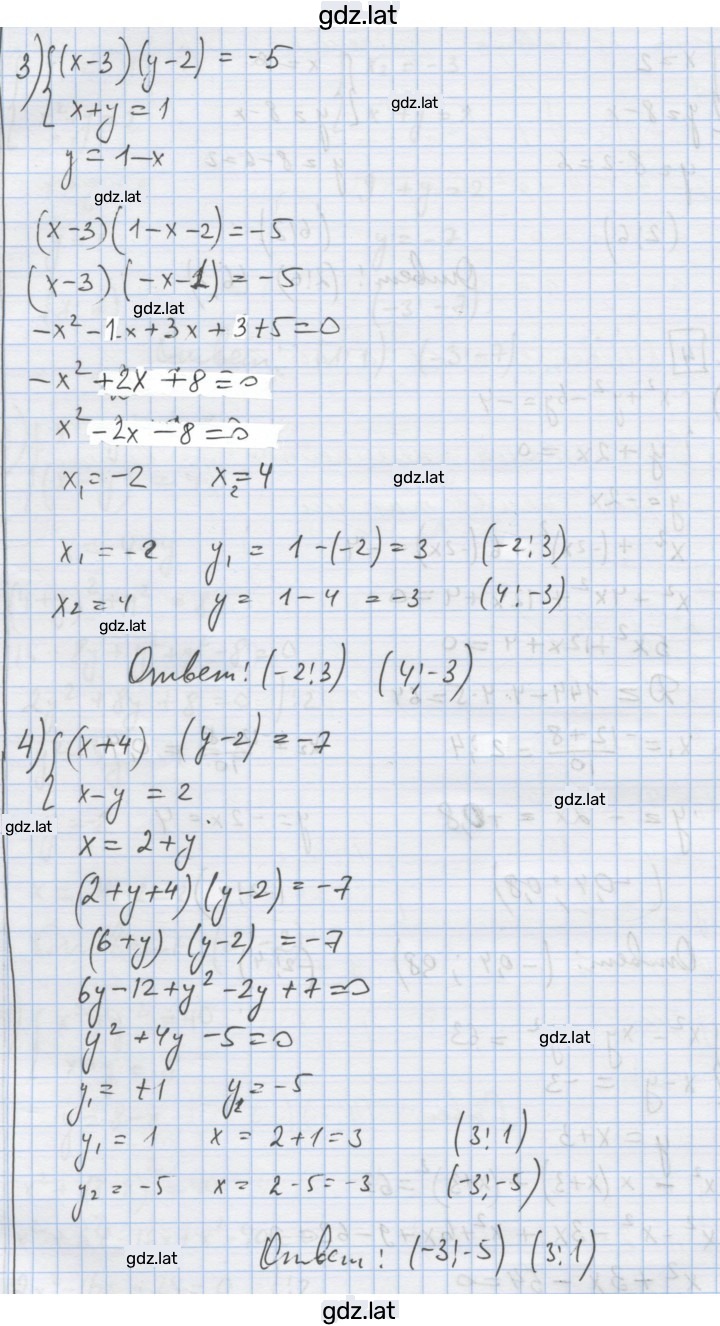 gdz.lat
3) { (x-3)(y-2) = -5
x+y = 1
gdz.lat
y = 1-x
gdz.lat
(x-3)(1-x-2) = -5
(x-3)(-x-1) = -5
gdz.lat
-x² - 1·x + 3x + 3 + 5 = 0
-x² + 2x + 8 = 0
x² - 2x - 8 = 0
x₁ = -2 x₂ = 4 gdz.lat
x₁ = -2 y₁ = 1-(-2) = 3 (-2; 3)
x₂ = 4 y = 1-4 = -3 (4; -3)
gdz.lat
Ответ: (-2; 3) (4; -3)
4) { (x+4) (y-2) = -7
x-y = 2
gdz.lat
gdz.lat
x = 2+y
(2+y+4)(y-2) = -7
(6+y) (y-2) = -7
6y-12+y² -2y+7=0
y² +4y -5=0
gdz.lat
y₁ = +1 y₂ = -5
y₁ = 1 x = 2+1=3 (3; 1)
y₂ = -5 x = 2-5=-3 (-3; -5)
gdz.lat
Ответ: (-3; -5) (3; 1)
gdz.lat